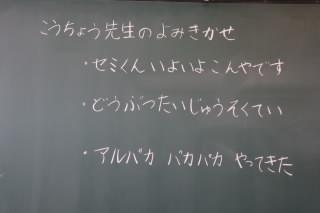 こうちょう先生のよみきかせ
・セミくんいよいよこんやです
・どうぶつたいじゅうそくてい
・アルパカ パカパカ やってきた